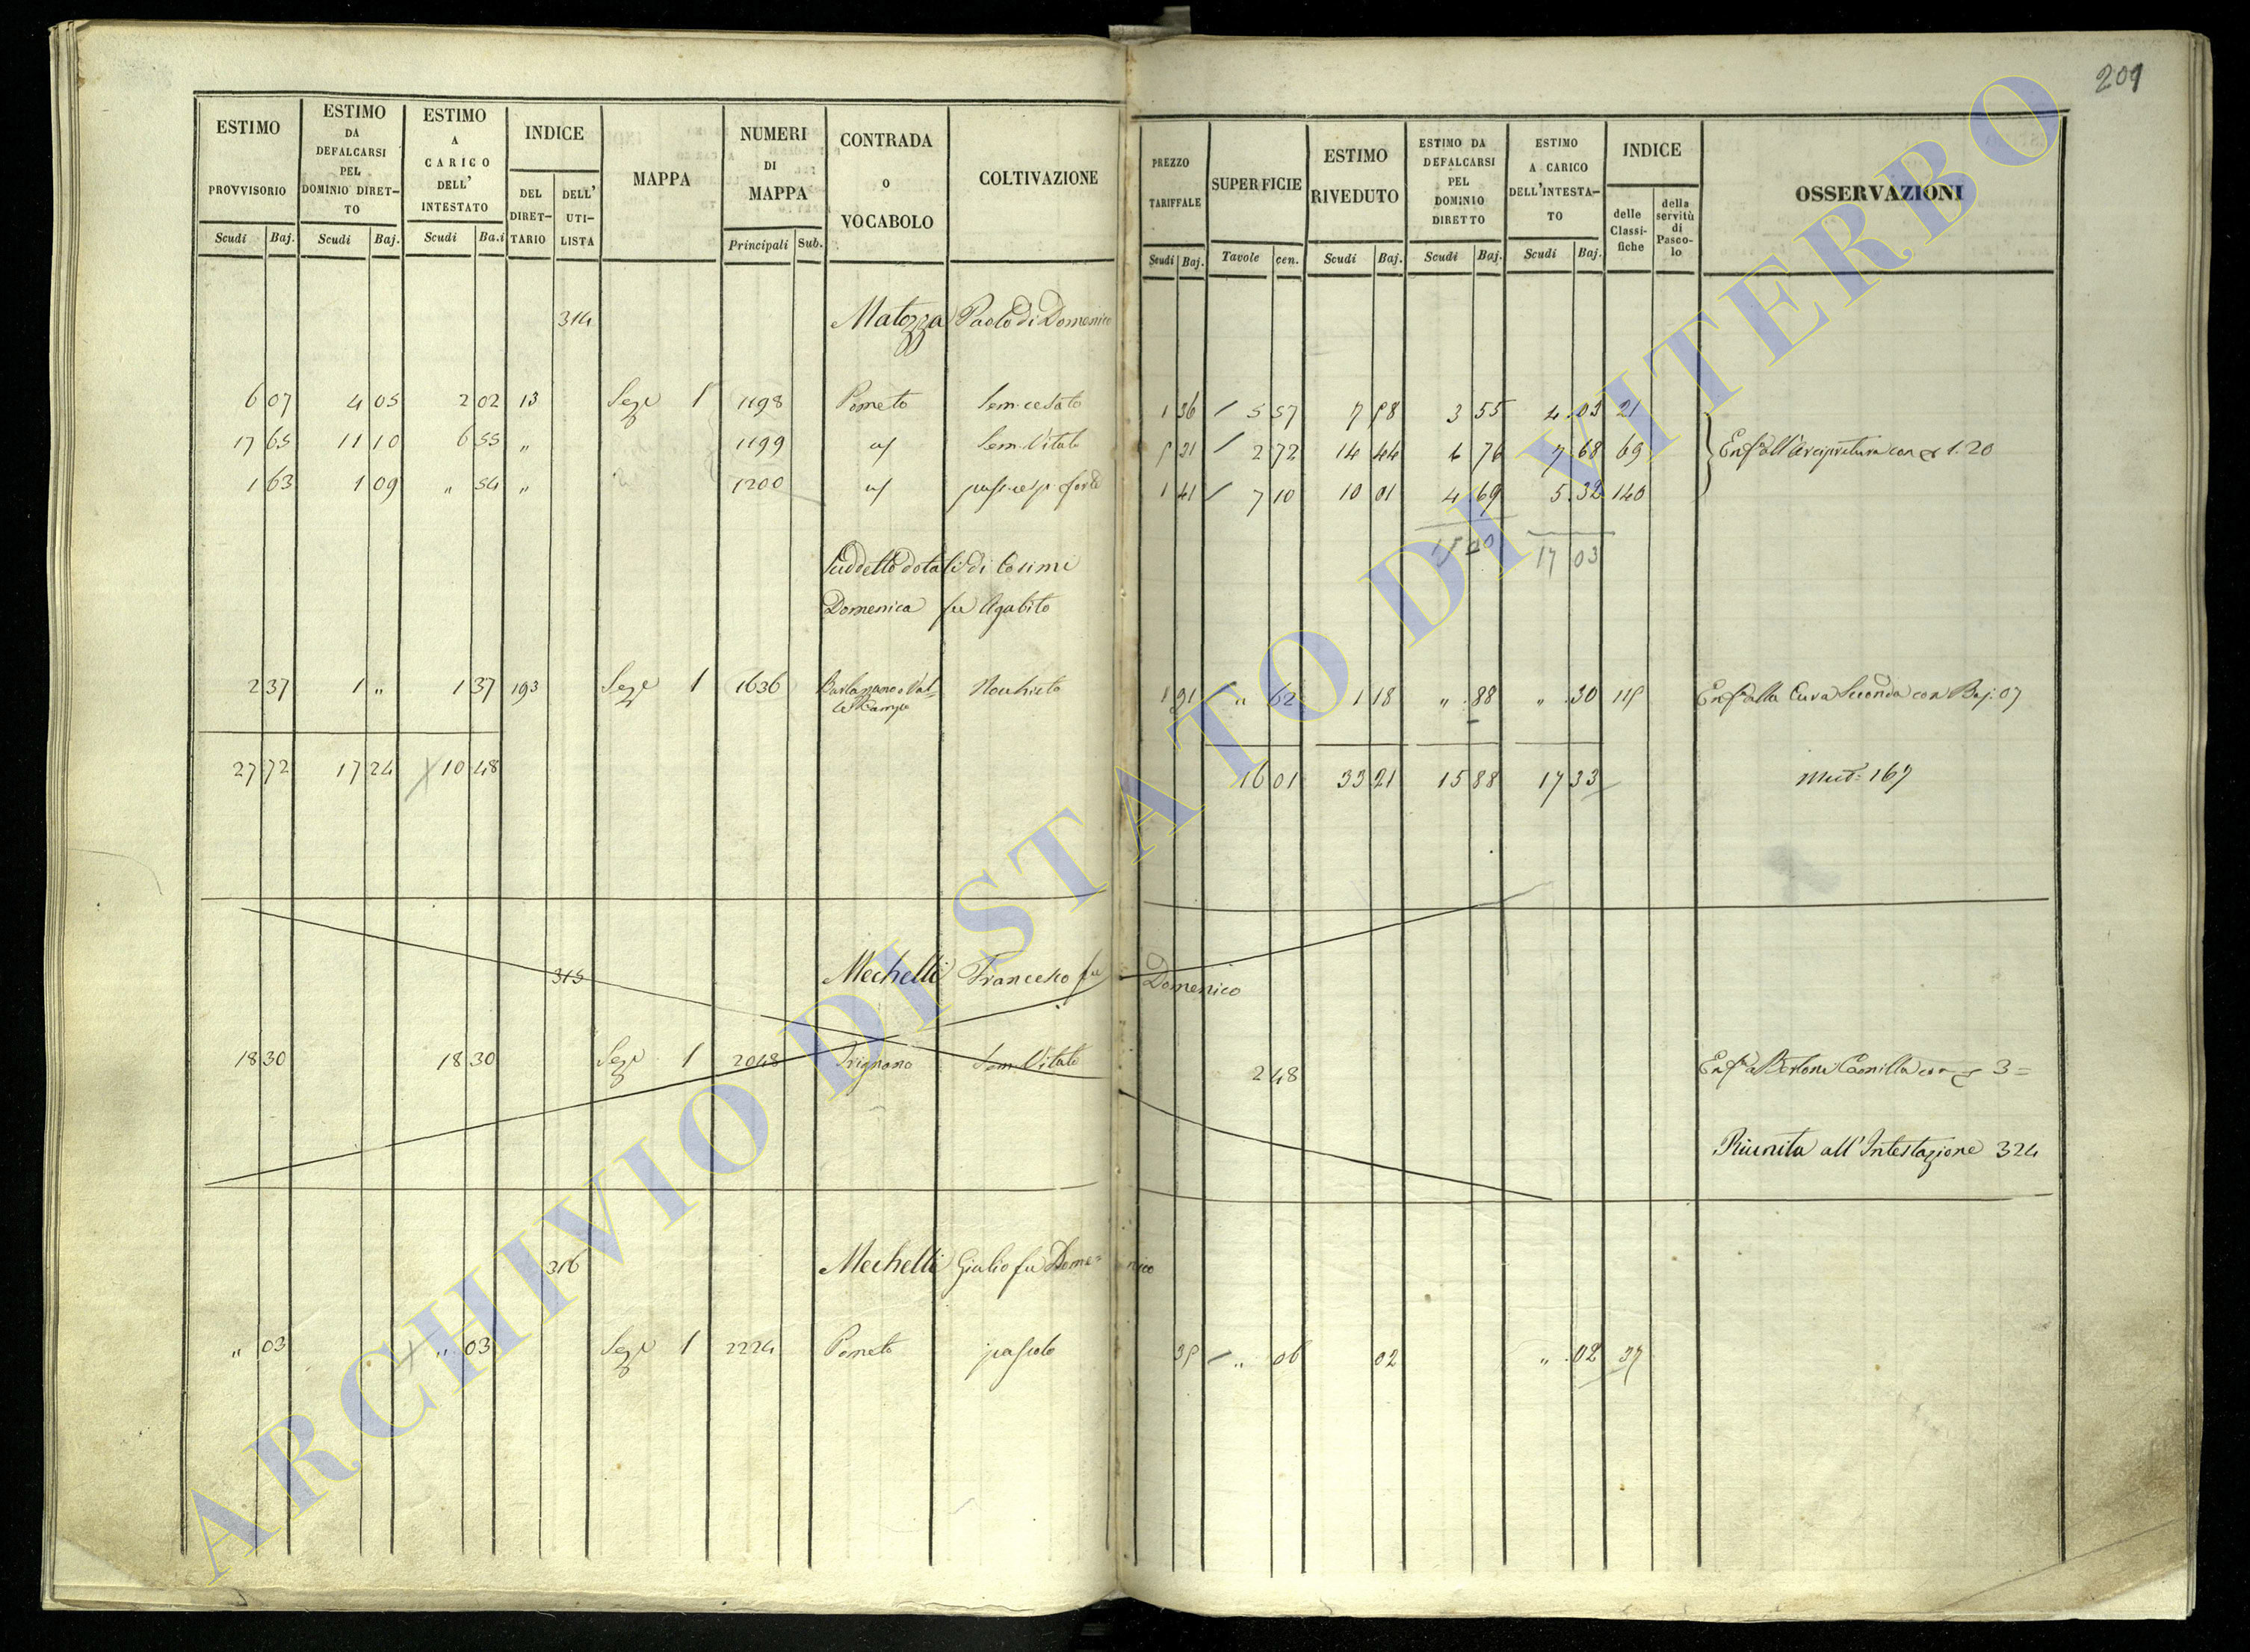 201
ESTIMO PROVVISORIO Scudi Baj.
ESTIMO DA DEFALCARSI PEL DOMINIO DIRET- TO Scudi Baj.
ESTIMO A CARICO DELL' INTESTATO Scudi Ba.i
INDICE DEL DIRET- TARIO DELL' UTI- LISTA
MAPPA
NUMERI DI MAPPA Principali Sub.
CONTRADA O VOCABOLO
COLTIVAZIONE
PREZZO TARIFFALE Scudi Baj.
SUPERFICIE Tavole cen.
ESTIMO RIVEDUTO Scudi Baj.
ESTIMO DA DEFALCARSI PEL DOMINIO DIRETTO Scudi Baj.
ESTIMO A CARICO DELL'INTESTA- TO Scudi Baj.
INDICE delle Classi- fiche della servitù di Pasco- lo
OSSERVAZIONI
314 Matozza Paolo di Domenico
6 07 4 05 2 02 13 Seze 1 1198 Poneto 1 36 5 57 3 55 4 03 21
17 65 11 10 6 55 " 1199 Sem. Vitato 2 72 14 44 6 76 7 68 69 Enfa all'Arcipretura con 1.20
1 63 1 09 " 54 " 1200 1 41 7 10 10 01 4 69 5 32 140
17 03
Suddetto dotali di Cosimi
Domenica fu Agabito
2 37 1 " 1 37 193 Seze 1 1636 1 91 " 62 1 18 " 88 " 30 Enfa alla Cura Seconda con Baj. 07
27 72 17 24 10 48 16 01 33 21 15 88 17 33 Mut= 167
315 Mechelli Francesco fu Domenico
18 30 18 30 Seze 1 2048 Sem. Vitato 2 48 Camilla 3 =
Riunita all'Intestazione 324
316 Mechelli Giulio fu Dome= nico
" 03 " 03 Seze 1 2224 Poneto pascolo " 06 02 " 02 37
ARCHIVIO DI STATO DI VITERBO